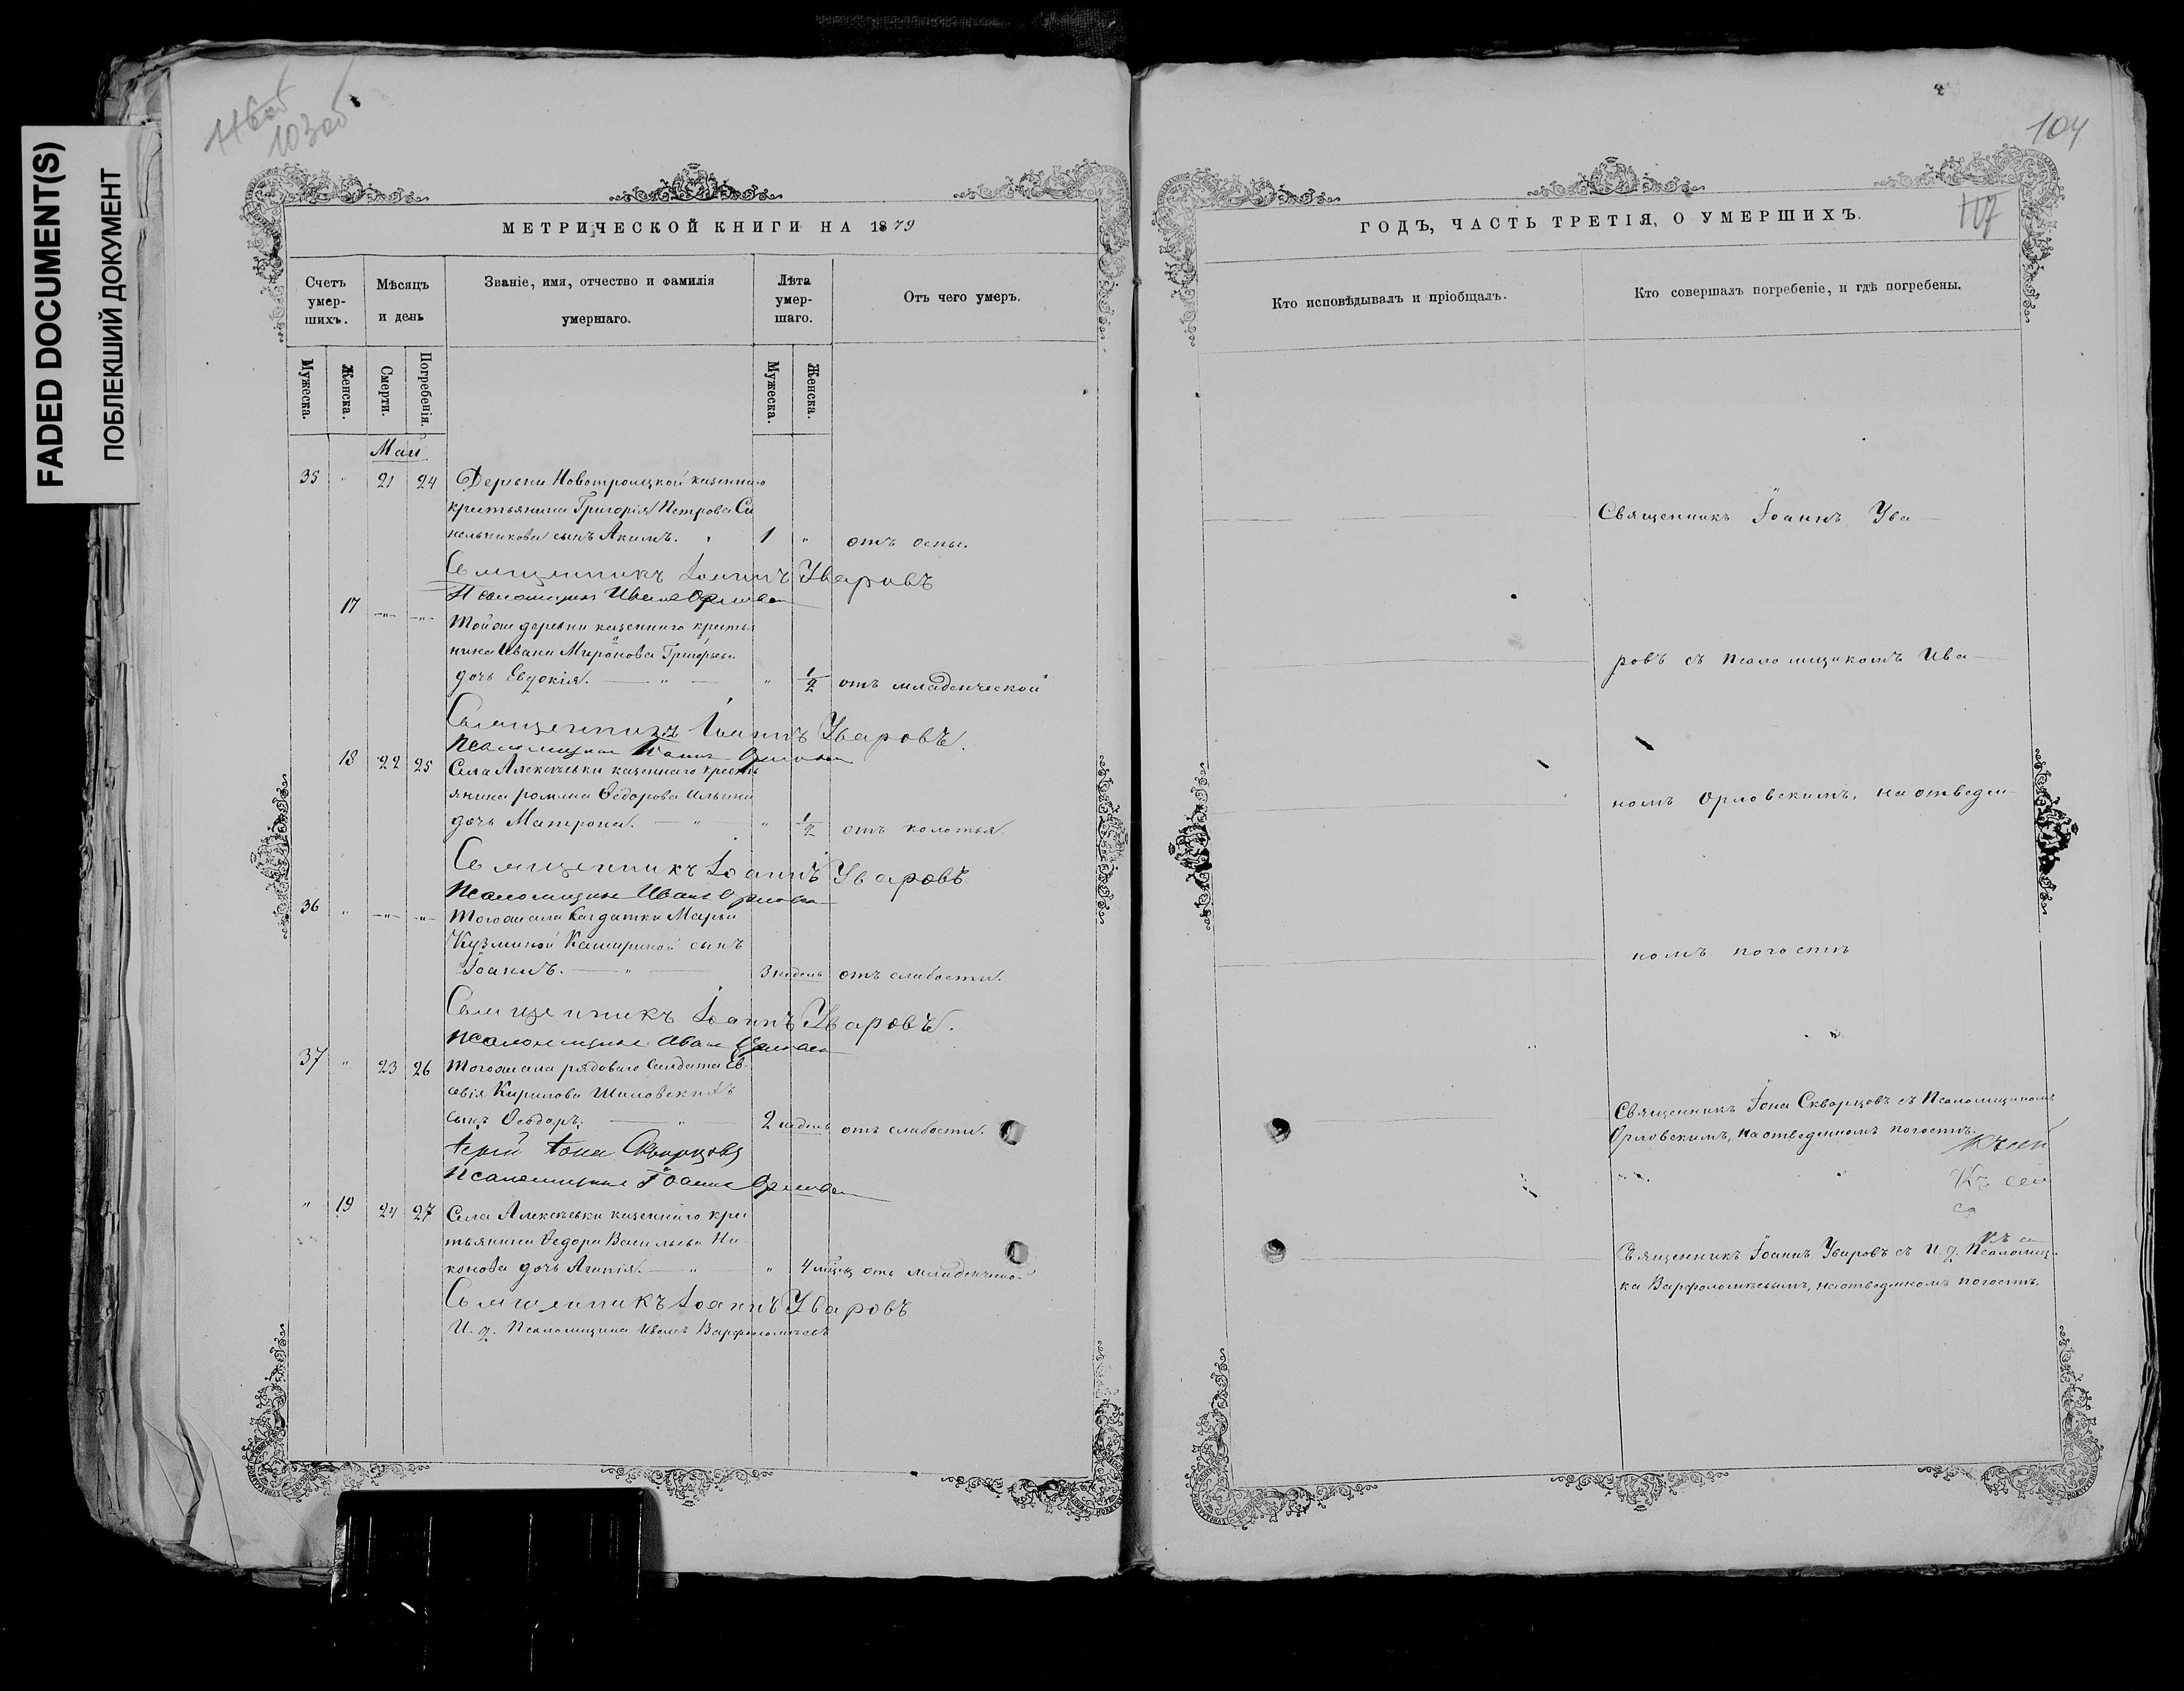 FADED DOCUMENT(S)
ПОБЛЕКШИЙ ДОКУМЕНТ
103об
МЕТРИЧЕСКОЙ КНИГИ НА 1879
Счетъ умер-шихъ.
Мѣсяцъ и день
Званіе, имя, отчество и фамилія умершаго.
Лѣта умер-шаго.
Отъ чего умеръ.
Мужеска.
Женска.
Смерти.
Погребенія.
Мужеска.
Женска.
Май
35 " 21 24 Деревни Новотроицкой казеннаго
крестьянина Григорія Петрова Си
нельникова сынъ Акимъ. " 1 " отъ оспы.
Священникъ Іоаннъ Уваровъ
Псаломщикъ Иванъ Орловскій
17 -"- -"- Тойже деревни казеннаго крестья
нина Ивана Миронова Григорьева
дочь Евдокія. — " — " 1/2 отъ младенческой
Священникъ Іоаннъ Уваровъ.
Псаломщикъ Іоаннъ Орловскій
18 22 25 Села Алексѣевки казеннаго кресть
янина Романа Ѳедорова Ильина
дочь Матрона. — " — " 1/2 отъ колотья.
Священникъ Іоаннъ Уваровъ
Псаломщикъ Иванъ Орловскій
36 " -"- -"- Тогоже села солдатки Марьи
Кузминой Кашириной сынъ
Іоаннъ. — " — 3 недель отъ слабости.
Священникъ Іоаннъ Уваровъ.
Псаломщикъ Иванъ Орловскій
37 " 23 26 Тогоже села рядоваго солдата Ев-
севія Кирилова Шиловскихъ
сынъ Ѳеодоръ. — " — 2 недель отъ слабости.
Іерей Іона Скворцовъ
Псаломщикъ Іоаннъ Орловскій
" 19 24 27 Села Алексѣевки казеннаго кре
тьянина Ѳедора Васильева Ни
конова дочь Агапія. — " — " 4 мѣсяц отъ младенческой
Священникъ Іоаннъ Уваровъ
И. д. Псаломщика Иванъ Варфоломѣевъ
104
107
ГОДЪ, ЧАСТЬ ТРЕТІЯ, О УМЕРШИХЪ.
Кто исповѣдывалъ и пріобщалъ.
Кто совершалъ погребеніе, и гдѣ погребены.
Священникъ Іоаннъ Ува—
ровъ съ Псаломщикомъ Ива—
номъ Орловскимъ, на отведен—
номъ погостѣ
Священникъ Іона Скворцовъ съ Псаломщикомъ
Орловскимъ, на отведенномъ погостѣ.
Къ сей
Священникъ Іоаннъ Уваровъ съ И. д. Псаломщи-
ка Варфоломѣевымъ, на отведенномъ погостѣ.